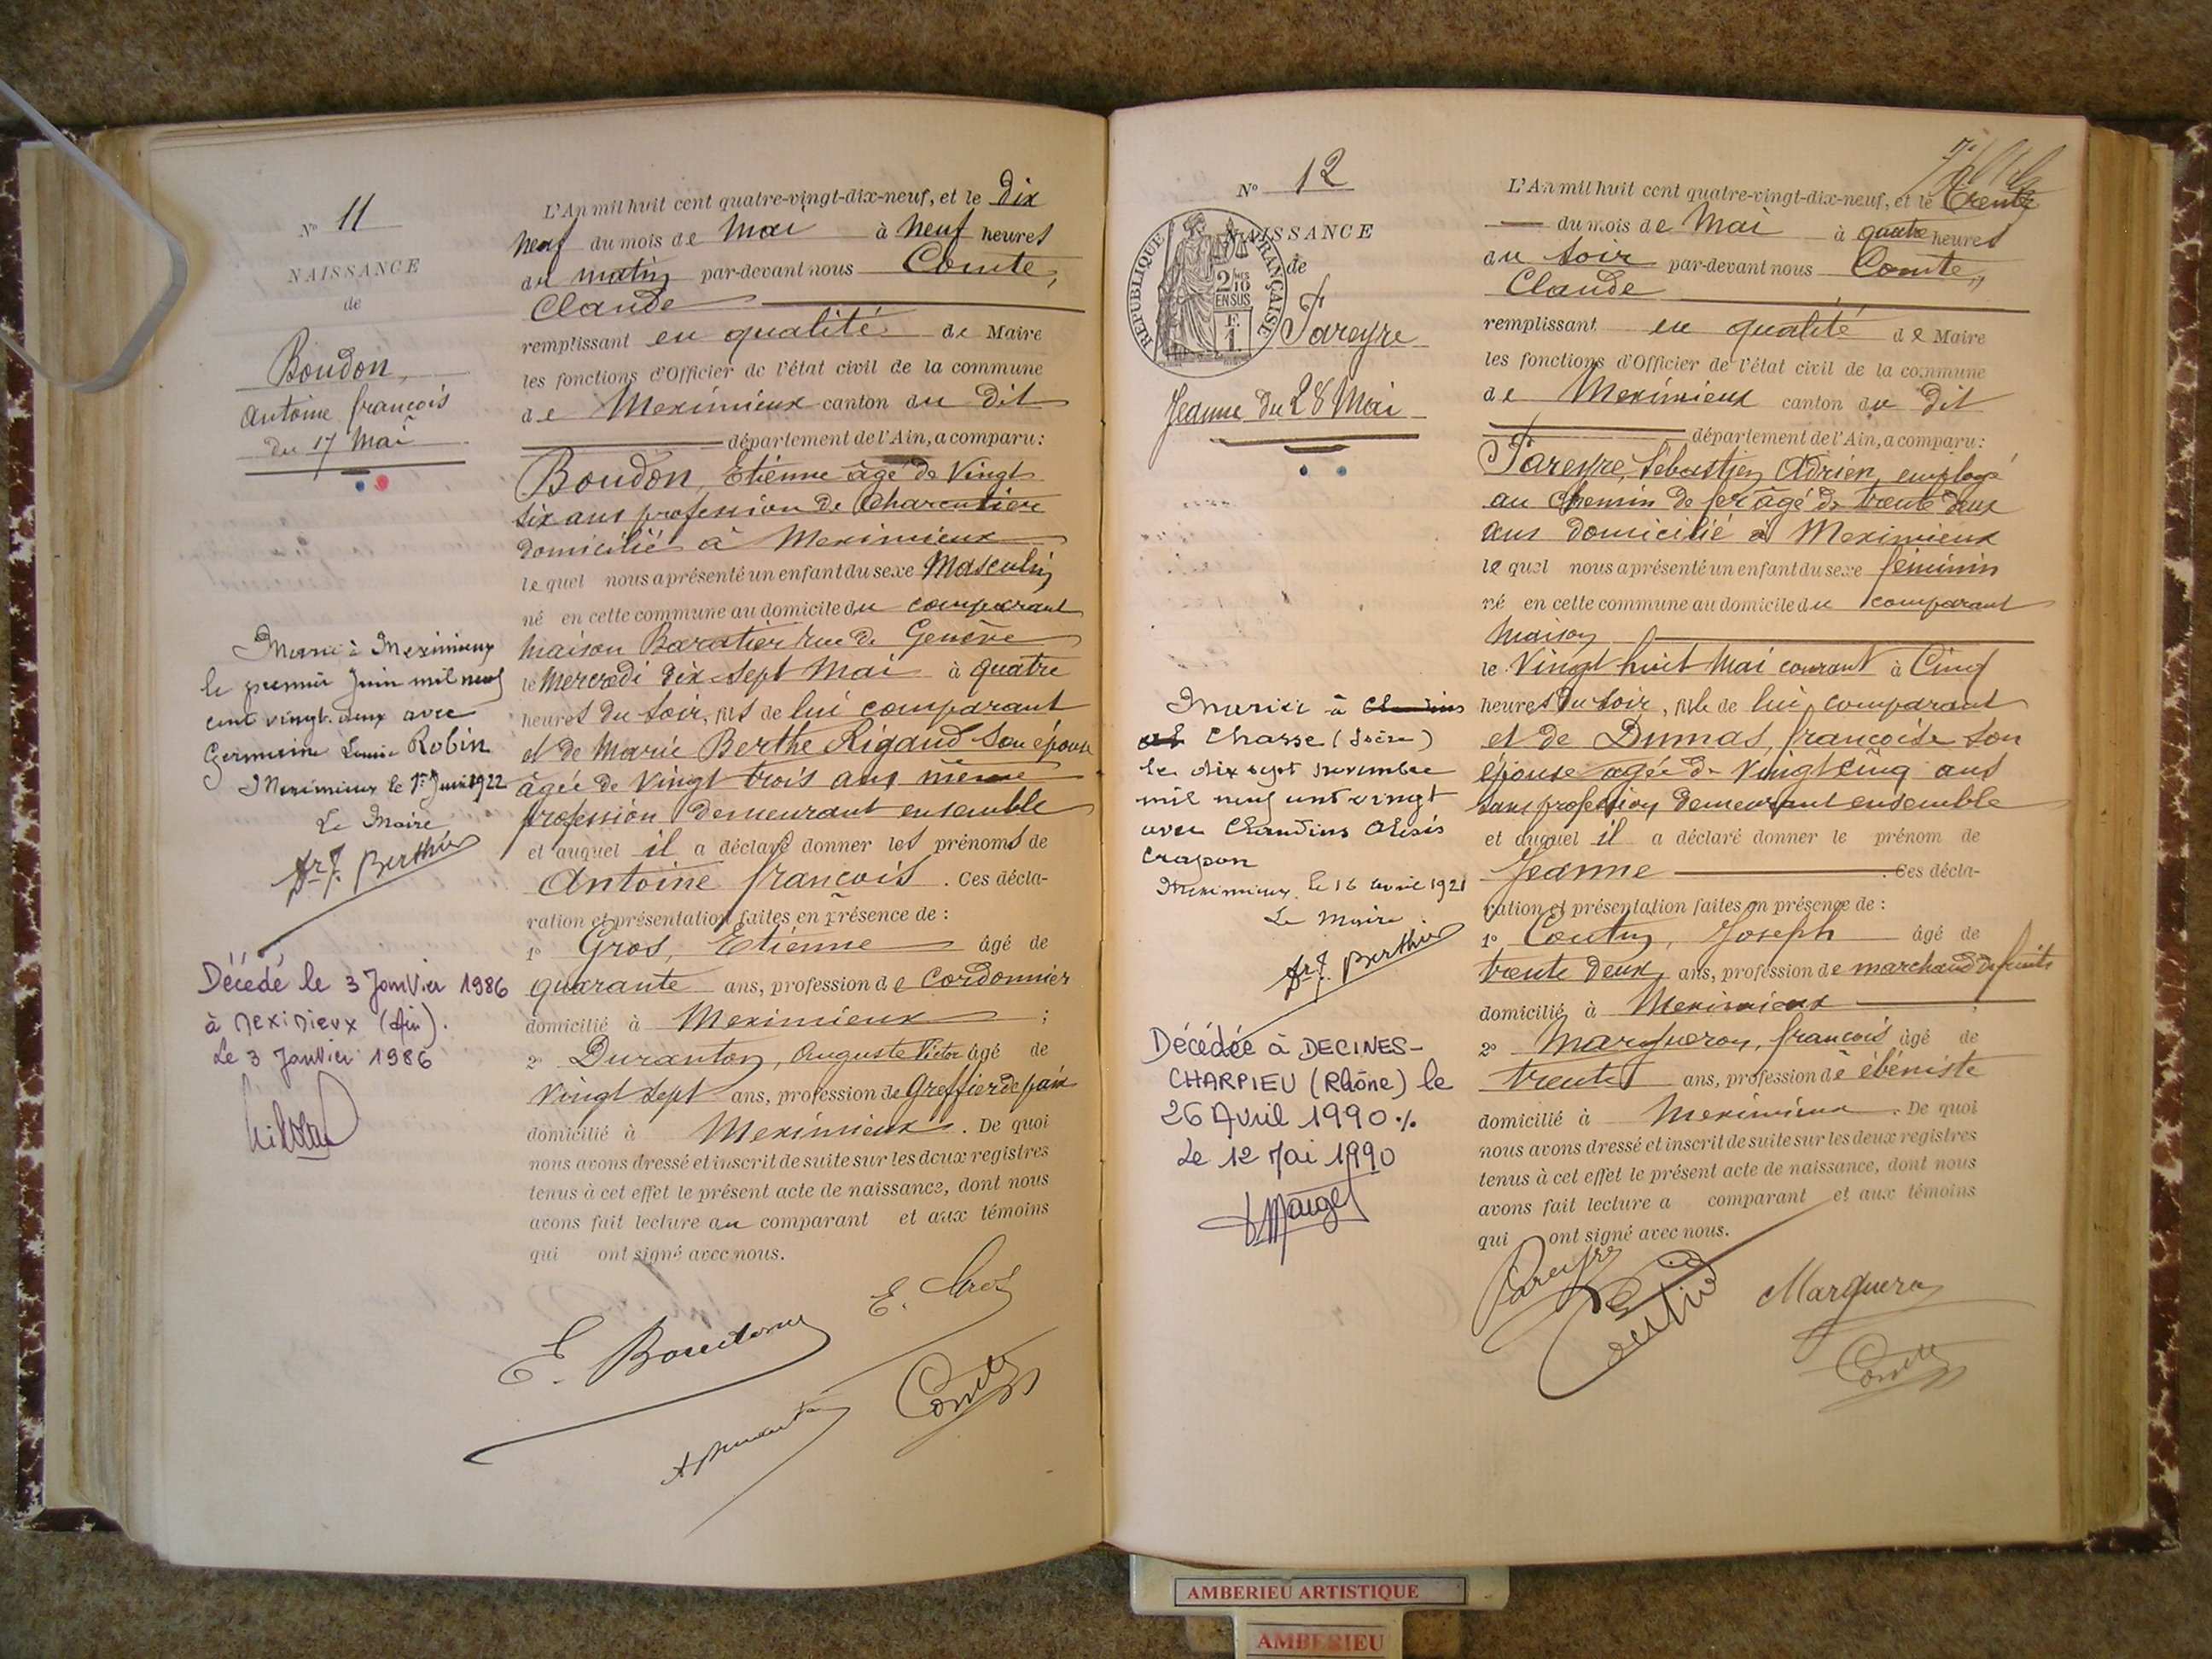 Nº 11
NAISSANCE
de
Boudon,
Antoine françois
du 17 Mai
Marié à Meximieux
le premier Juin mil neuf
cent vingt-deux avec
Germaine Louise Robin
Meximieux le 1er Juin 1922
Le Maire
Dr J. Berthier
Décédé le 3 Janvier 1986
à Meximieux (Ain).
Le 3 Janvier 1986
L'An mil huit cent quatre-vingt-dix-neuf, et le dix
neuf du mois de Mai à neuf heures
du matin par-devant nous Comte,
Claude
remplissant en qualité de Maire
les fonctions d'Officier de l'état civil de la commune
de Meximieux canton du dit
département de l'Ain, a comparu:
Boudon, Etienne âgé de Vingt
six ans profession de Charcutier
domicilié à Meximieux
lequel nous a présenté un enfant du sexe Masculin
né en cette commune au domicile du comparant
maison Baratier rue de Genève
le Mercredi dix-sept Mai à quatre
heures du soir, fils de lui comparant
et de Marie Berthe Rigaud son épouse
âgée de vingt trois ans même
profession demeurant ensemble
et auquel il a déclaré donner les prénoms de
Antoine françois. Ces décla-
ration et présentation faites en présence de:
1º Gros, Etienne âgé de
quarante ans, profession de Cordonnier
domicilié à Meximieux;
2º Duranton, Auguste Victor âgé de
vingt sept ans, profession de Greffier de paix
domicilié à Meximieux. De quoi
nous avons dressé et inscrit de suite sur les deux registres
tenus à cet effet le présent acte de naissance, dont nous
avons fait lecture au comparant et aux témoins
qui ont signé avec nous.
E. Boudon
E. Gros
Comte
Nº 12
NAISSANCE
de
RÉPUBLIQUE FRANÇAISE
2/10 EN SUS
F. 1
Fareyre
Jeanne du 28 Mai
Mariée à
Chasse (Isère)
le dix sept novembre
mil neuf cent vingt
avec Claudius Alexis
Crapon
Meximieux, le 16 avril 1921
Le Maire
Dr J. Berthier
Décédée à DECINES-
CHARPIEU (Rhône) le
26 Avril 1990 ./.
Le 12 Mai 1990
L'An mil huit cent quatre-vingt-dix-neuf, et le trente
du mois de Mai à quatre heures
du soir par-devant nous Comte,
Claude
remplissant en qualité de Maire
les fonctions d'Officier de l'état civil de la commune
de Meximieux canton du dit
département de l'Ain, a comparu:
Fareyre, Sébastien Adrien, employé
au chemin de fer âgé de trente deux
ans domicilié à Meximieux
lequel nous a présenté un enfant du sexe féminin
né en cette commune au domicile du comparant
maison
le vingt huit Mai courant à Cinq
heures du soir, fille de lui comparant
et de Dumas, françoise son
épouse âgée de vingt cinq ans
sans profession demeurant ensemble
et auquel il a déclaré donner le prénom de
Jeanne. Ces décla-
ration et présentation faites en présence de:
1º Joseph âgé de
trente deux ans, profession de marchand de fruits
domicilié à Meximieux;
2º Margueron, françois âgé de
trente ans, profession de ébéniste
domicilié à Meximieux. De quoi
nous avons dressé et inscrit de suite sur les deux registres
tenus à cet effet le présent acte de naissance, dont nous
avons fait lecture a comparant et aux témoins
qui ont signé avec nous.
Fareyre
Margueron
Comte
AMBERIEU ARTISTIQUE
AMBERIEU